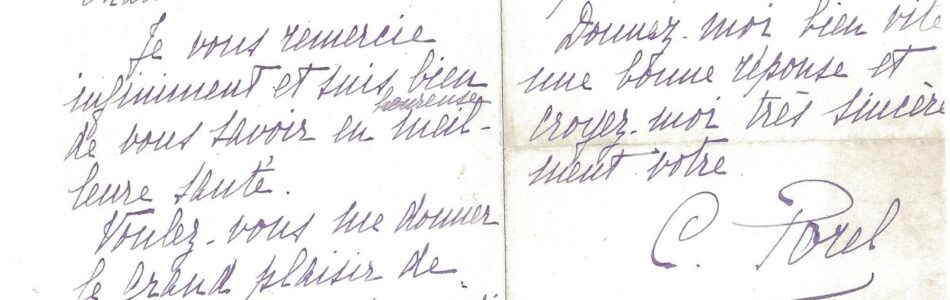 Je vous remercie
infiniment et suis bien
heureuse
de vous savoir en meil-
leure santé.
Voulez-vous me donner
le grand plaisir de
Donnez-moi bien vite
une bonne réponse et
croyez-moi très sincère
ment votre
C. Porel